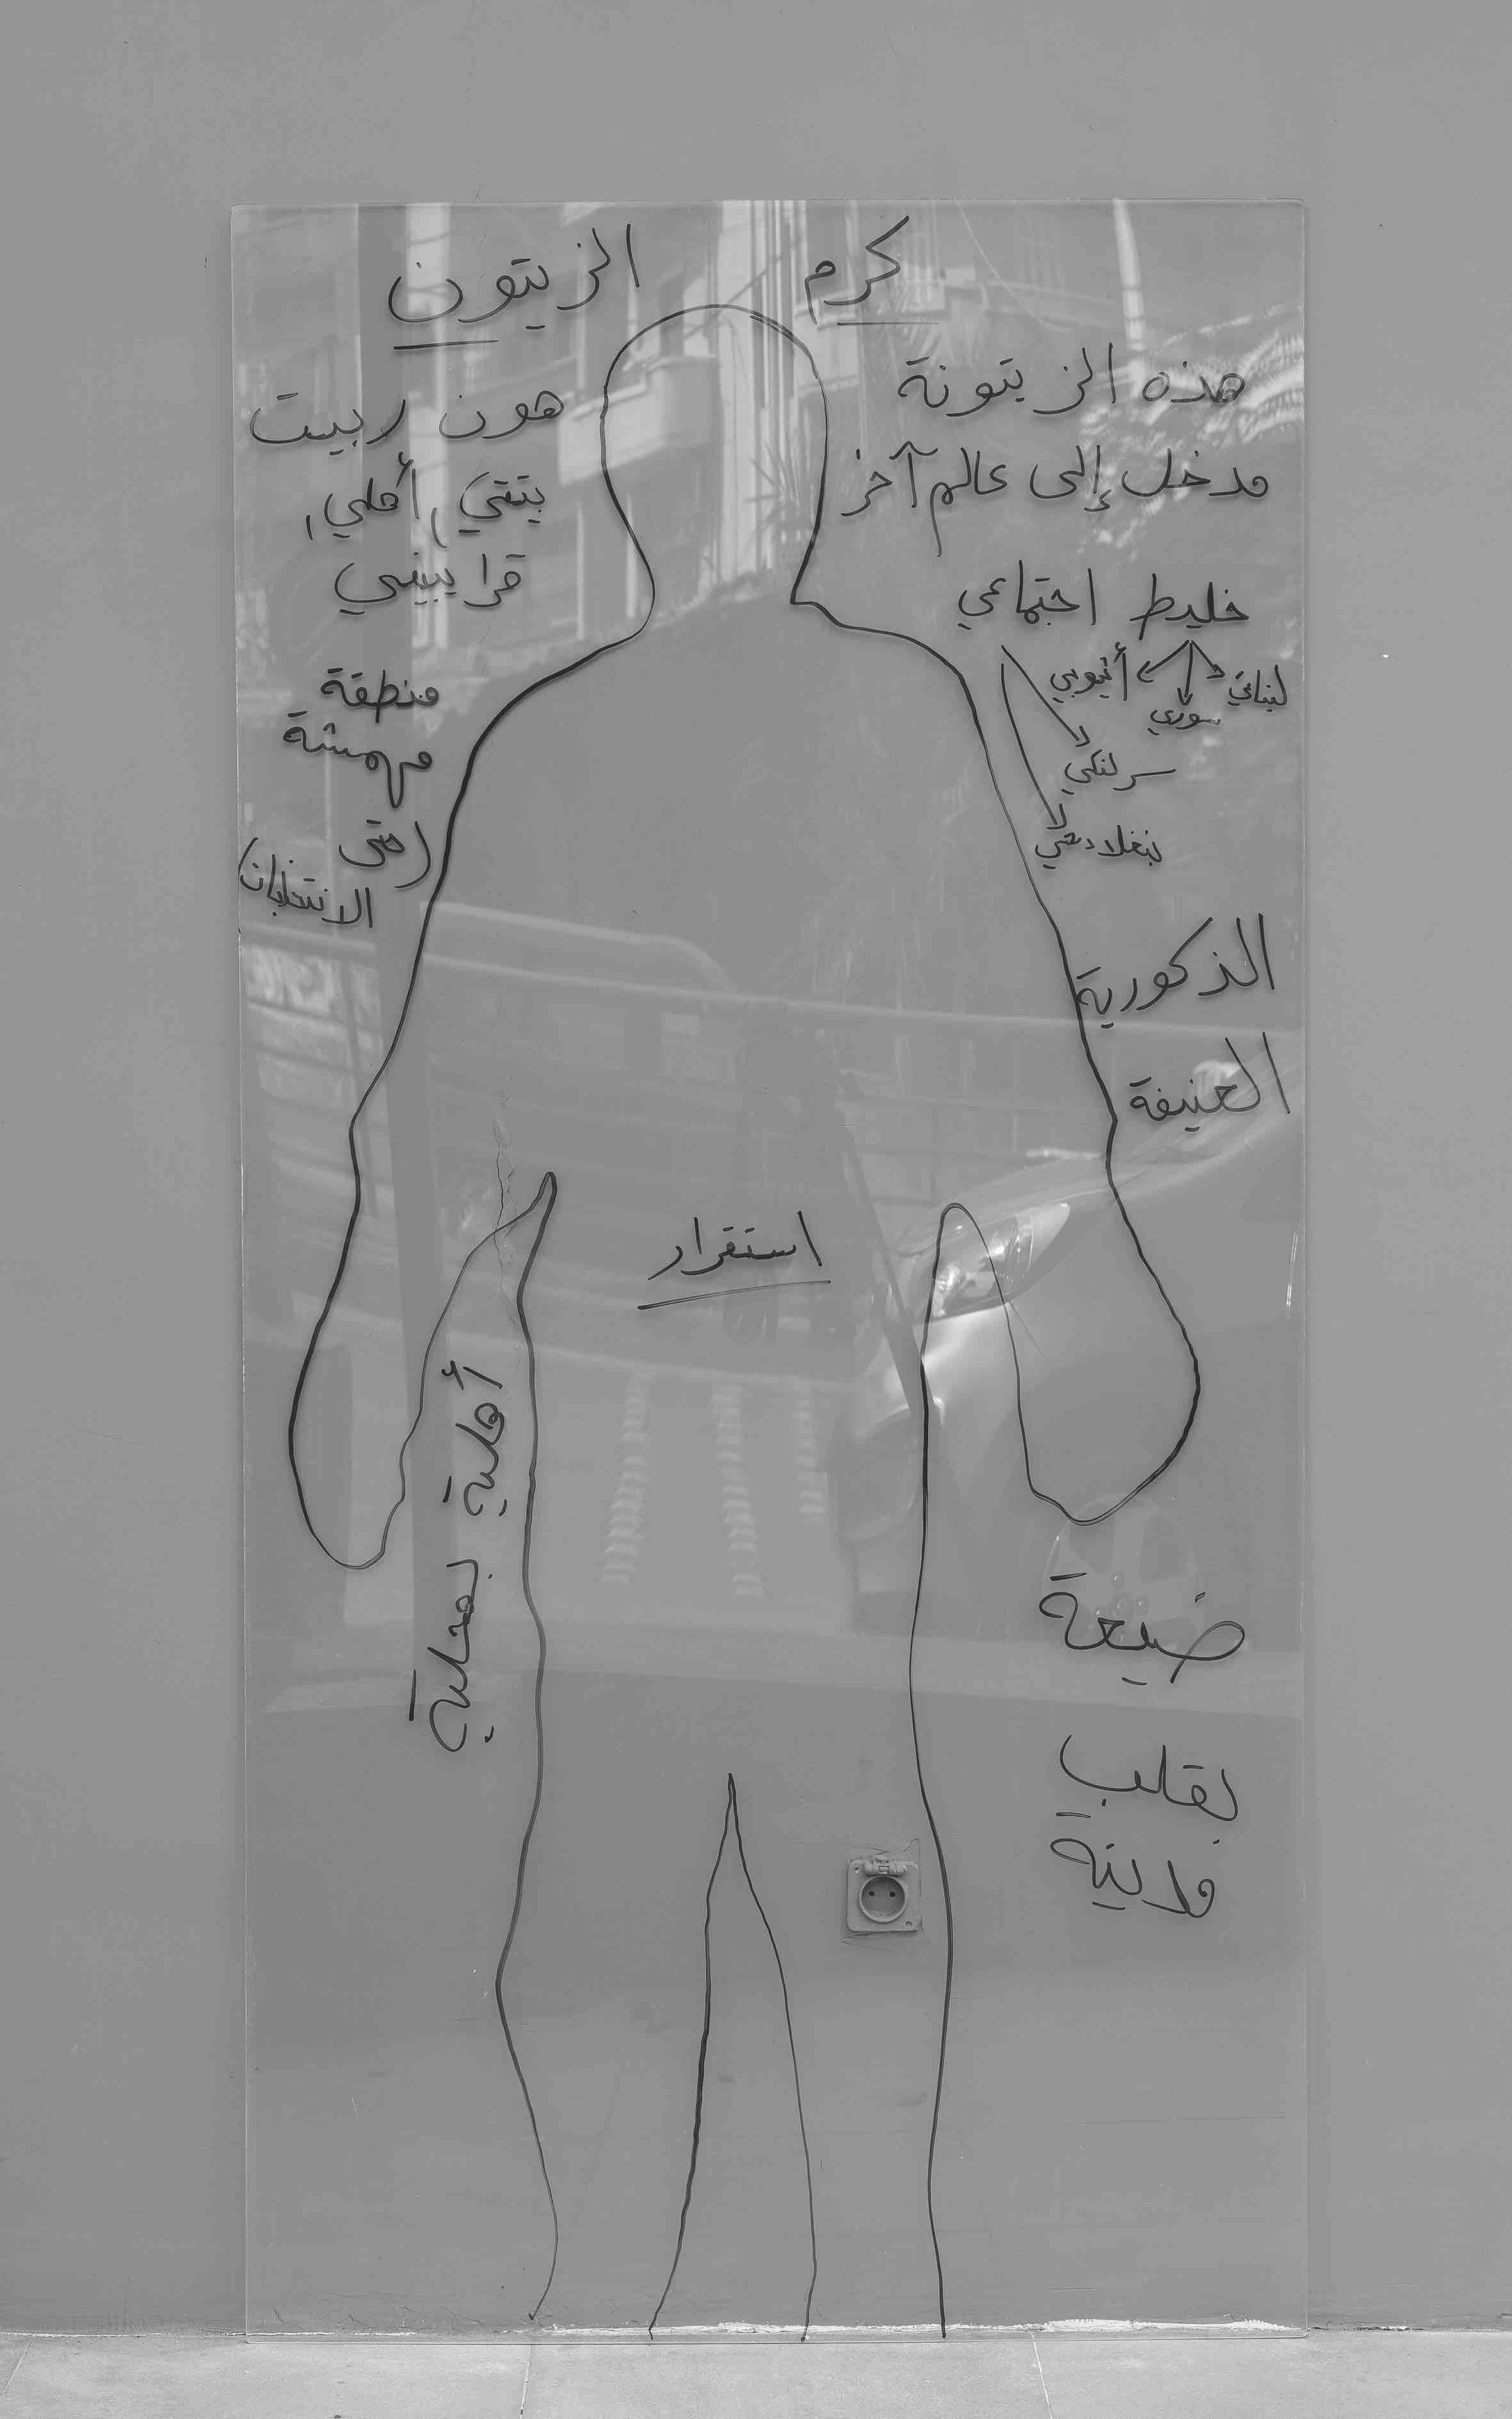 كرم الزيتون
هذه الزيتونة
مدخل إلى عالم آخر
خليط اجتماعي
لبناني
سوري
أثيوبي
سرلنكي
بنغلادشي
الذكورية
العنيفة
ضيعة
بقلب
مدينة
هون ربيت
بتتقي، أهلي،
قرايبيني
منطقة
مهمشة
(حتى
الانتخابات)
استقرار
أهلية بمحلية